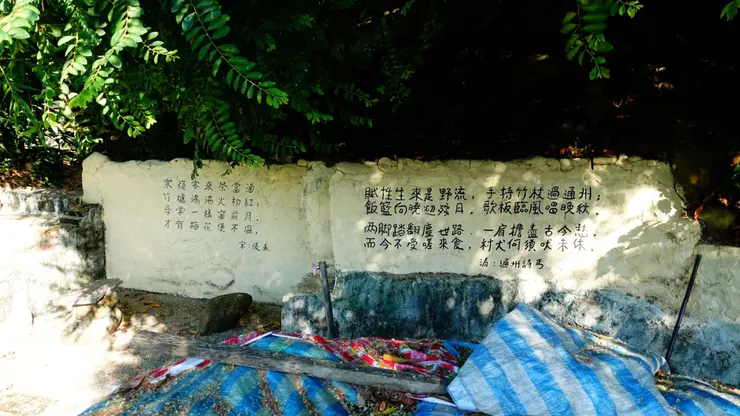 寒夜客來茶當酒，
竹爐湯沸火初紅，
尋常一樣窗前月，
才有梅花便不同。
宋：
賦性生來是野流，手持竹杖過通州；
飯籃向晚迎殘月，歌板臨風唱晚秋。
兩脚踏翻塵世路，一肩擔盡古今愁，
而今不受嗟來食，村犬何須吠未休。
清：通州詩丐